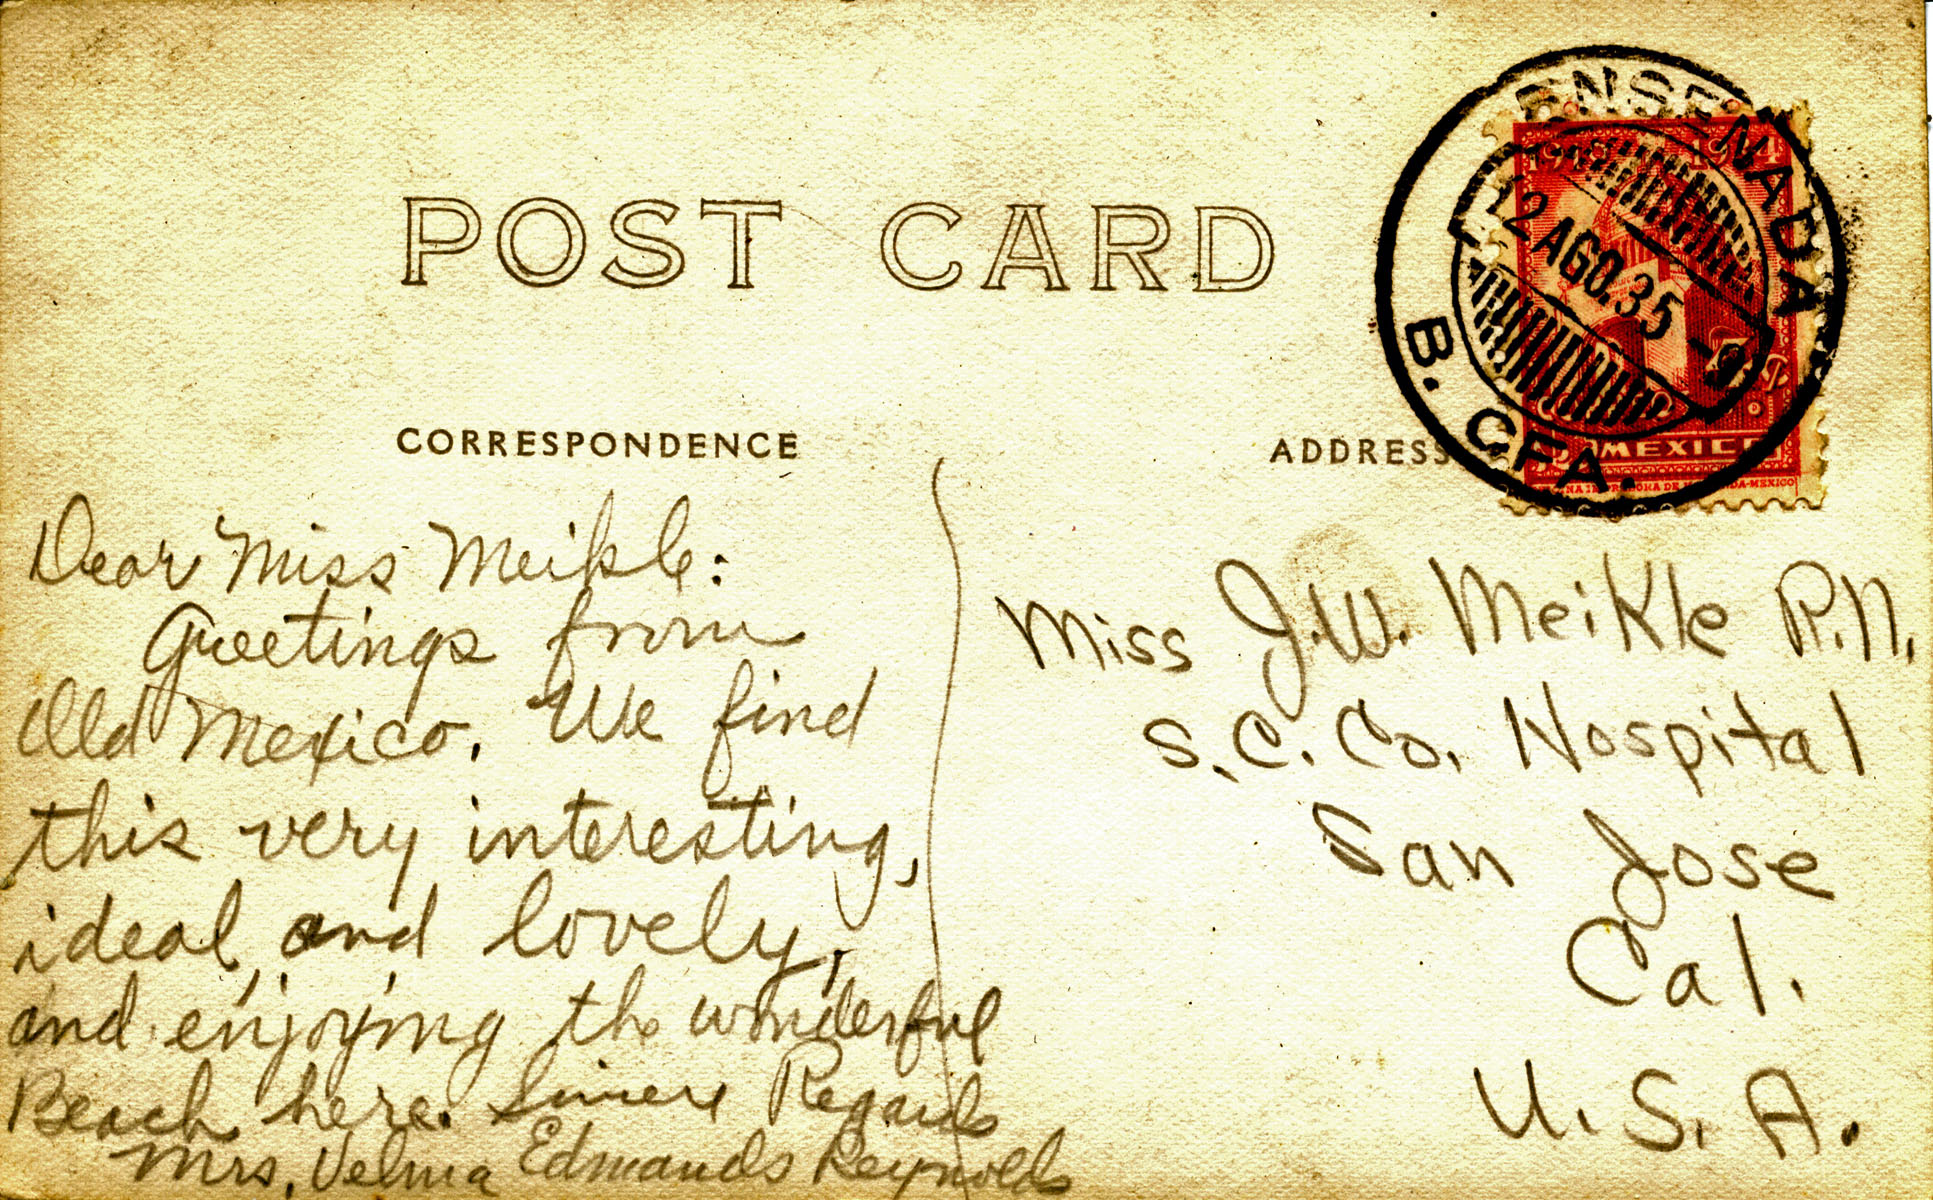 POST CARD
ENSENADA
12 AGO.35 -9
B. CFA.
1934
MEXICO
CORRESPONDENCE
ADDRESS
Dear Miss Meikle:
Greetings from
Old Mexico. We find
this very interesting,
ideal, and lovely,
and enjoying the wonderful
Beach here. Sincere Regards
Mrs. Velma Edmands Reynolds
Miss J.W. Meikle R.N.
S.C. Co. Hospital
San Jose
Cal.
U.S.A.